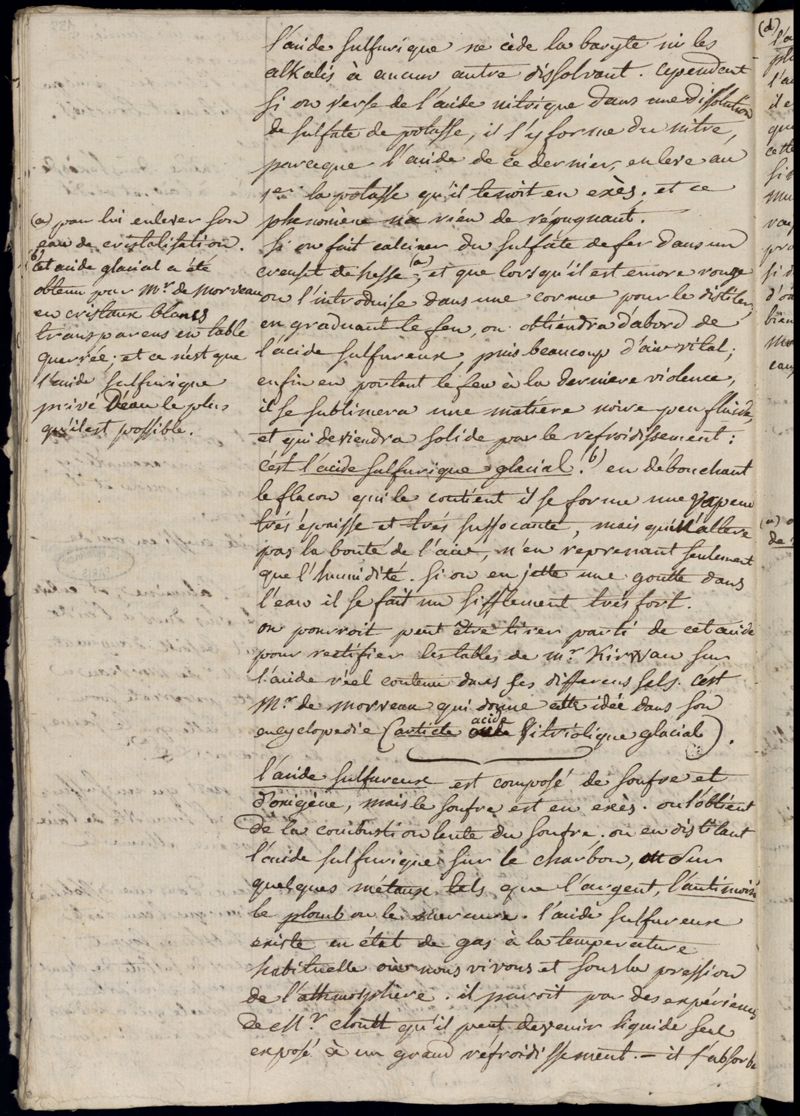 l'acide sulfurique ne cède la baryte ni les
alkalis à aucun autre dissolvant. cependent
si on verse de l'acide nitrique dans une dissolution
de sulfate de potasse, il s'y forme du nitre,
parceque l'acide de ce dernier, enleve au
1er la potasse qu'il tenoit en exès. et ce
phenomène n'a rien de repugnant.
si on fait calciner du sulfate de fer dans un
creuset de hesse (a), et que lorsqu'il est encore rouge
on l'introduise dans une cornue pour le distiler,
en graduant le feu, on obtiendra d'abord de
l'acide sulfureux, puis beaucoup d'air vital;
enfin en portant le feu à la derniere violence,
il se sublimera une matiere noire peu fluide,
et qui deviendra solide par le refroidissement:
c'est l'acide sulfurique glacial. (b) en débouchant
le flacon qui le contient il se forme une vapeur
très épaisse et très suffocante, mais qui n'altere
pas la bonté de l'air, n'en reprenant seulement
que l'humidité. si on en jette une goutte dans
l'eau il se fait un sifflement très fort.
on pourroit peut être tirer parti de cet acide
pour rectifier les tables de mr. Kirwan sur
l'acide réel contenu dans les differens sels. c'est
Mr. de morveau qui donne cette idée dans son
encyclopedie (article acide vitriolique glacial).
l'acide sulfureux est composé de soufre et
d'oxigène, mais le soufre est en exès. on l'obtient
de la combustion lente du soufre. on en distilant
l'acide sulfurique sur le charbon, ou sur
quelques métaux tels que l'argent, l'antimoine
le plomb ou le mercure. l'acide sulfureux
existe en état de gas à la temperature
habituelle où nous vivons et sous la pression
de l'athmosphère. il paroit par des expériences
de Mr. cloutt qu'il peut devenir liquide seul
exposé à un grand refroidissement. — il s'absorbe
(a) pour lui enlever son
eau de cristalisation.
(b) cet acide glacial a été
obtenu par Mr. de morveau
en cristaux blancs
transparens en table
quarrée; et ce n'est que
l'acide sulfurique
privé d'eau le plus
qu'il est possible.
(d)